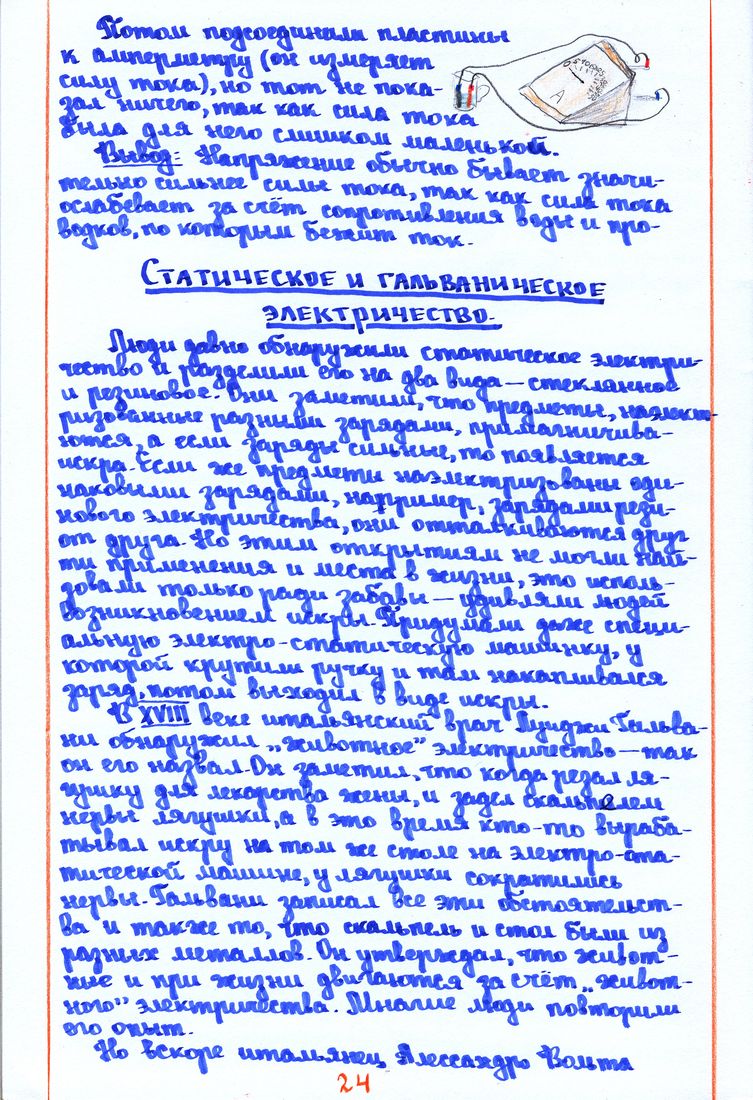 Потом подсоединили пластины
к амперметру (он измеряет
силу тока), но тот не пока-
зал ничего, так как сила тока
была для него слишком маленькой.
Вывод: Напряжение обычно бывает значи-
тельно сильнее силы тока, так как сила тока
ослабевает за счёт сопротивления воды и про-
водков, по которым бежит ток.
Статическое и гальваническое
электричество.
Люди давно обнаружили статическое электри-
чество и разделили его на два вида — стеклянное
и резиновое. Они заметили, что предметы, наэлект-
ризованные разными зарядами, примагничива-
ются, а если заряды сильные, то появляется
искра. Если же предметы наэлектризованы оди-
наковыми зарядами, например, зарядами рези-
нового электричества, они отталкиваются друг
от друга. Но этим открытиям не могли най-
ти применения и места в жизни, это исполь-
зовали только ради забавы — удивляли людей
возникновением искры. Придумали даже специ-
альную электро-статическую машинку, у
которой крутили ручку и там накапливался
заряд, потом выходил в виде искры.
В XVIII веке итальянский врач Луиджи Гальва-
ни обнаружил „животное” электричество — так
он его назвал. Он заметил, что когда резал ля-
гушку для лекарства жены, и задел скальпелем
нервы лягушки, а в это время кто-то выраба-
тывал искру на том же столе на электро-ста-
тической машине, у лягушки сократились
нервы. Гальвани записал все эти обстоятельст-
ва и также то, что скальпель и стол были из
разных металлов. Он утверждал, что живот-
ные и при жизни двигаются за счёт „живот-
ного” электричества. Многие люди повторили
его опыт.
Но вскоре итальянец Алессандро Вольта
24
A